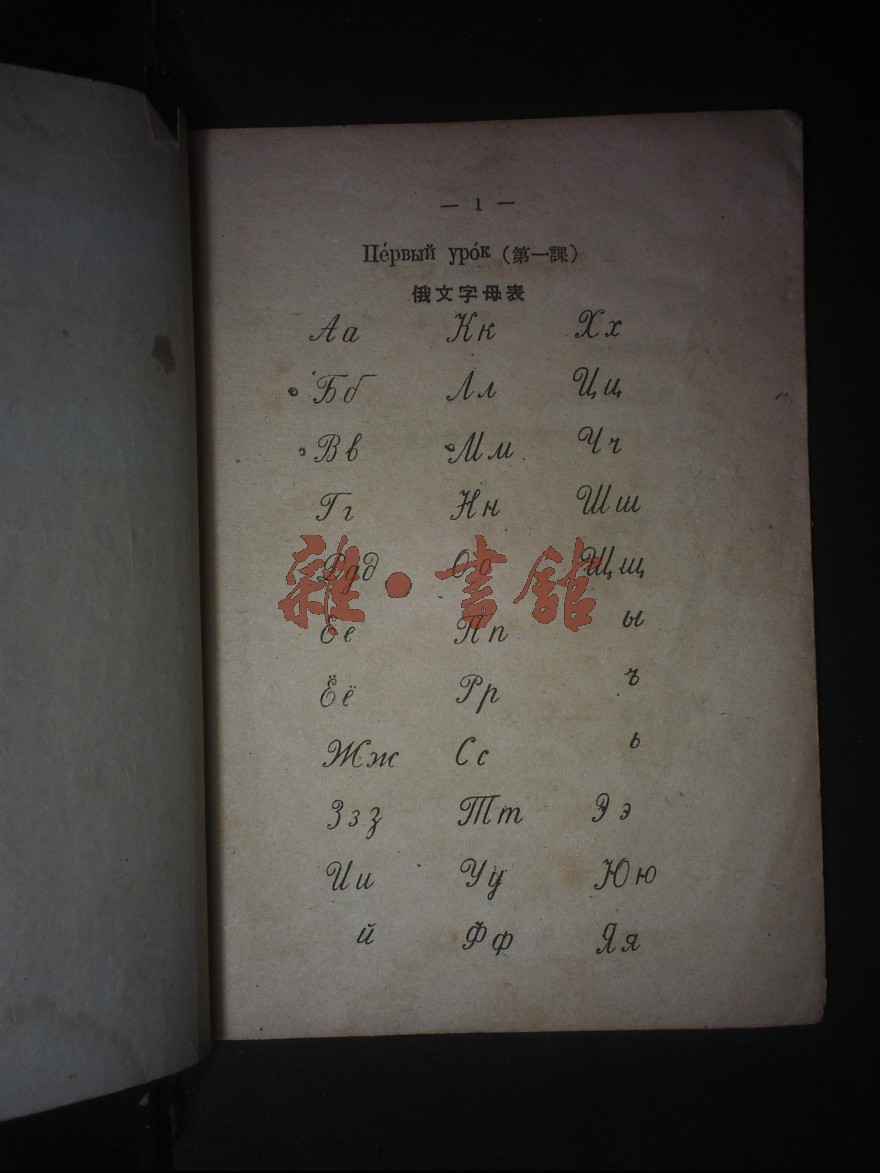 — 1 —
Пе́рвый уро́к (第一課)
俄文字母表
Аа Кк Хх
Бб Лл Цц
Вв Мм Чч
Гг Нн Шш
Ддд Оо Щщ
Ее Пп ы
Ёё Рр ъ
Жж Сс ь
Ззз Тт Ээ
Ии Уу Юю
й Фф Яя
雜·書館